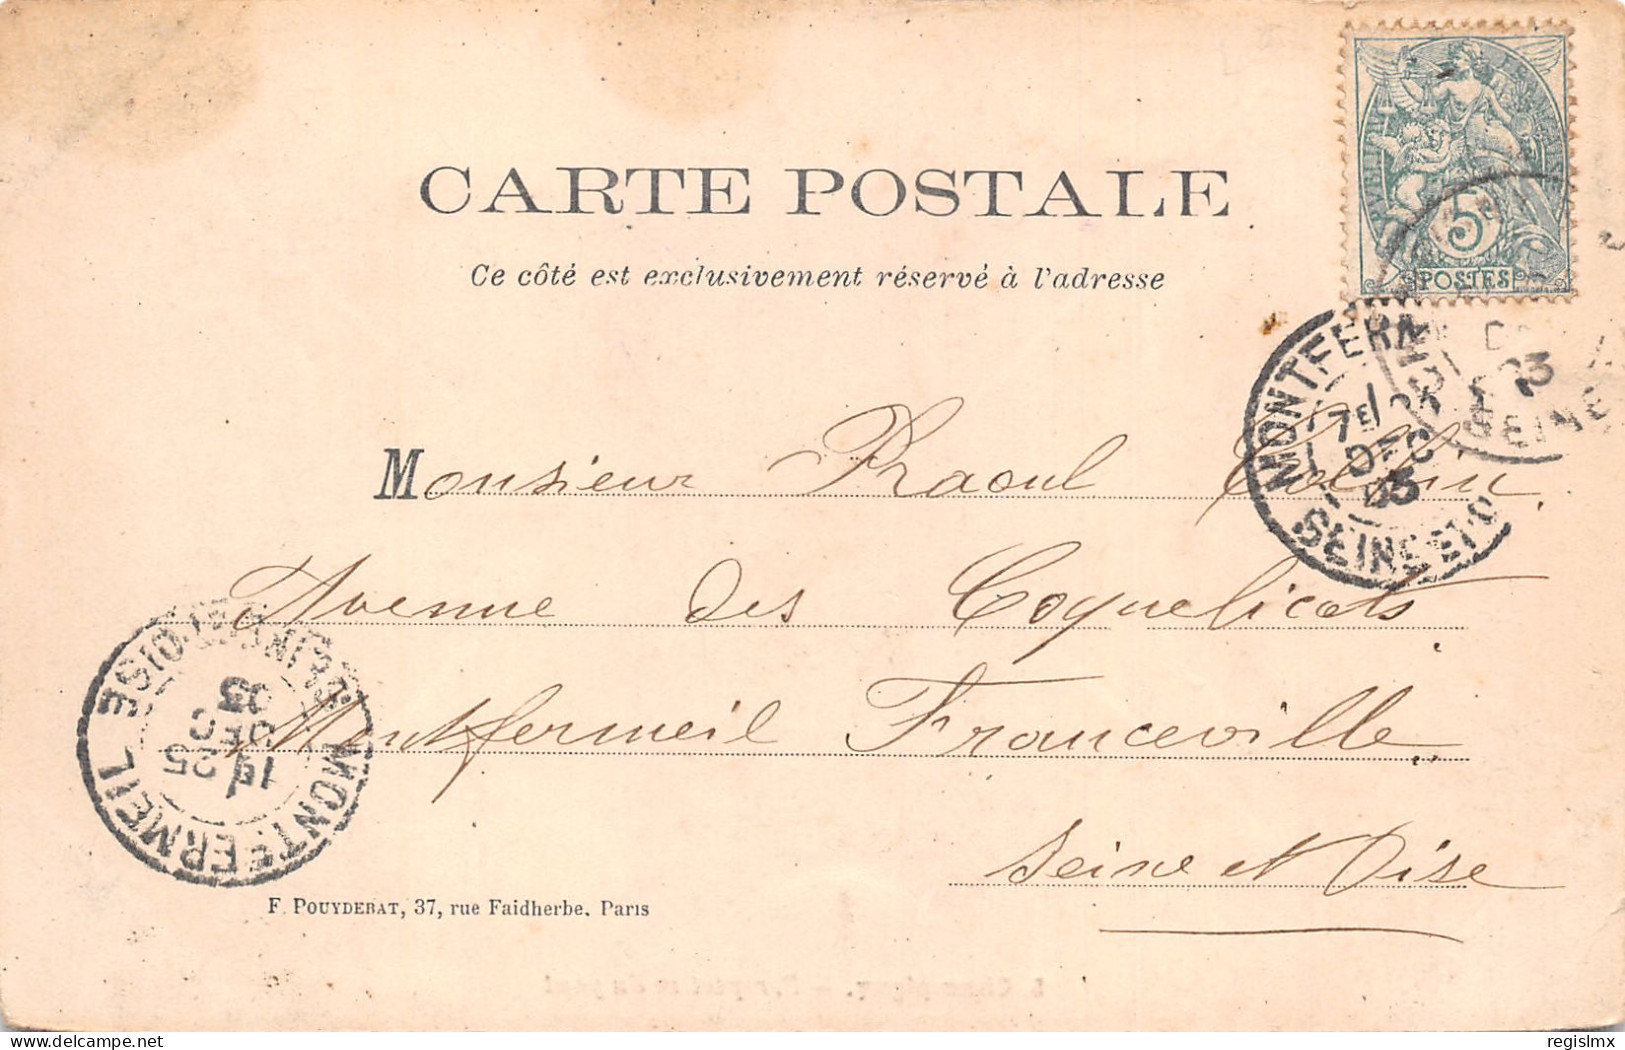 CARTE POSTALE
Ce côté est exclusivement réservé à l'adresse
5c
POSTES
Monsieur Raoul
Avenue des Coquelicots
Montfermeil Franceville
Seine et Oise
MONTFERMEIL
SEINE ET O
7E
DEC
03
SEINE
MONTFERMEIL
SEINE-ET-OISE
1E 25
DEC
03
F. POUYDEBAT, 37, rue Faidherbe, Paris
delcampe.net
regislmx